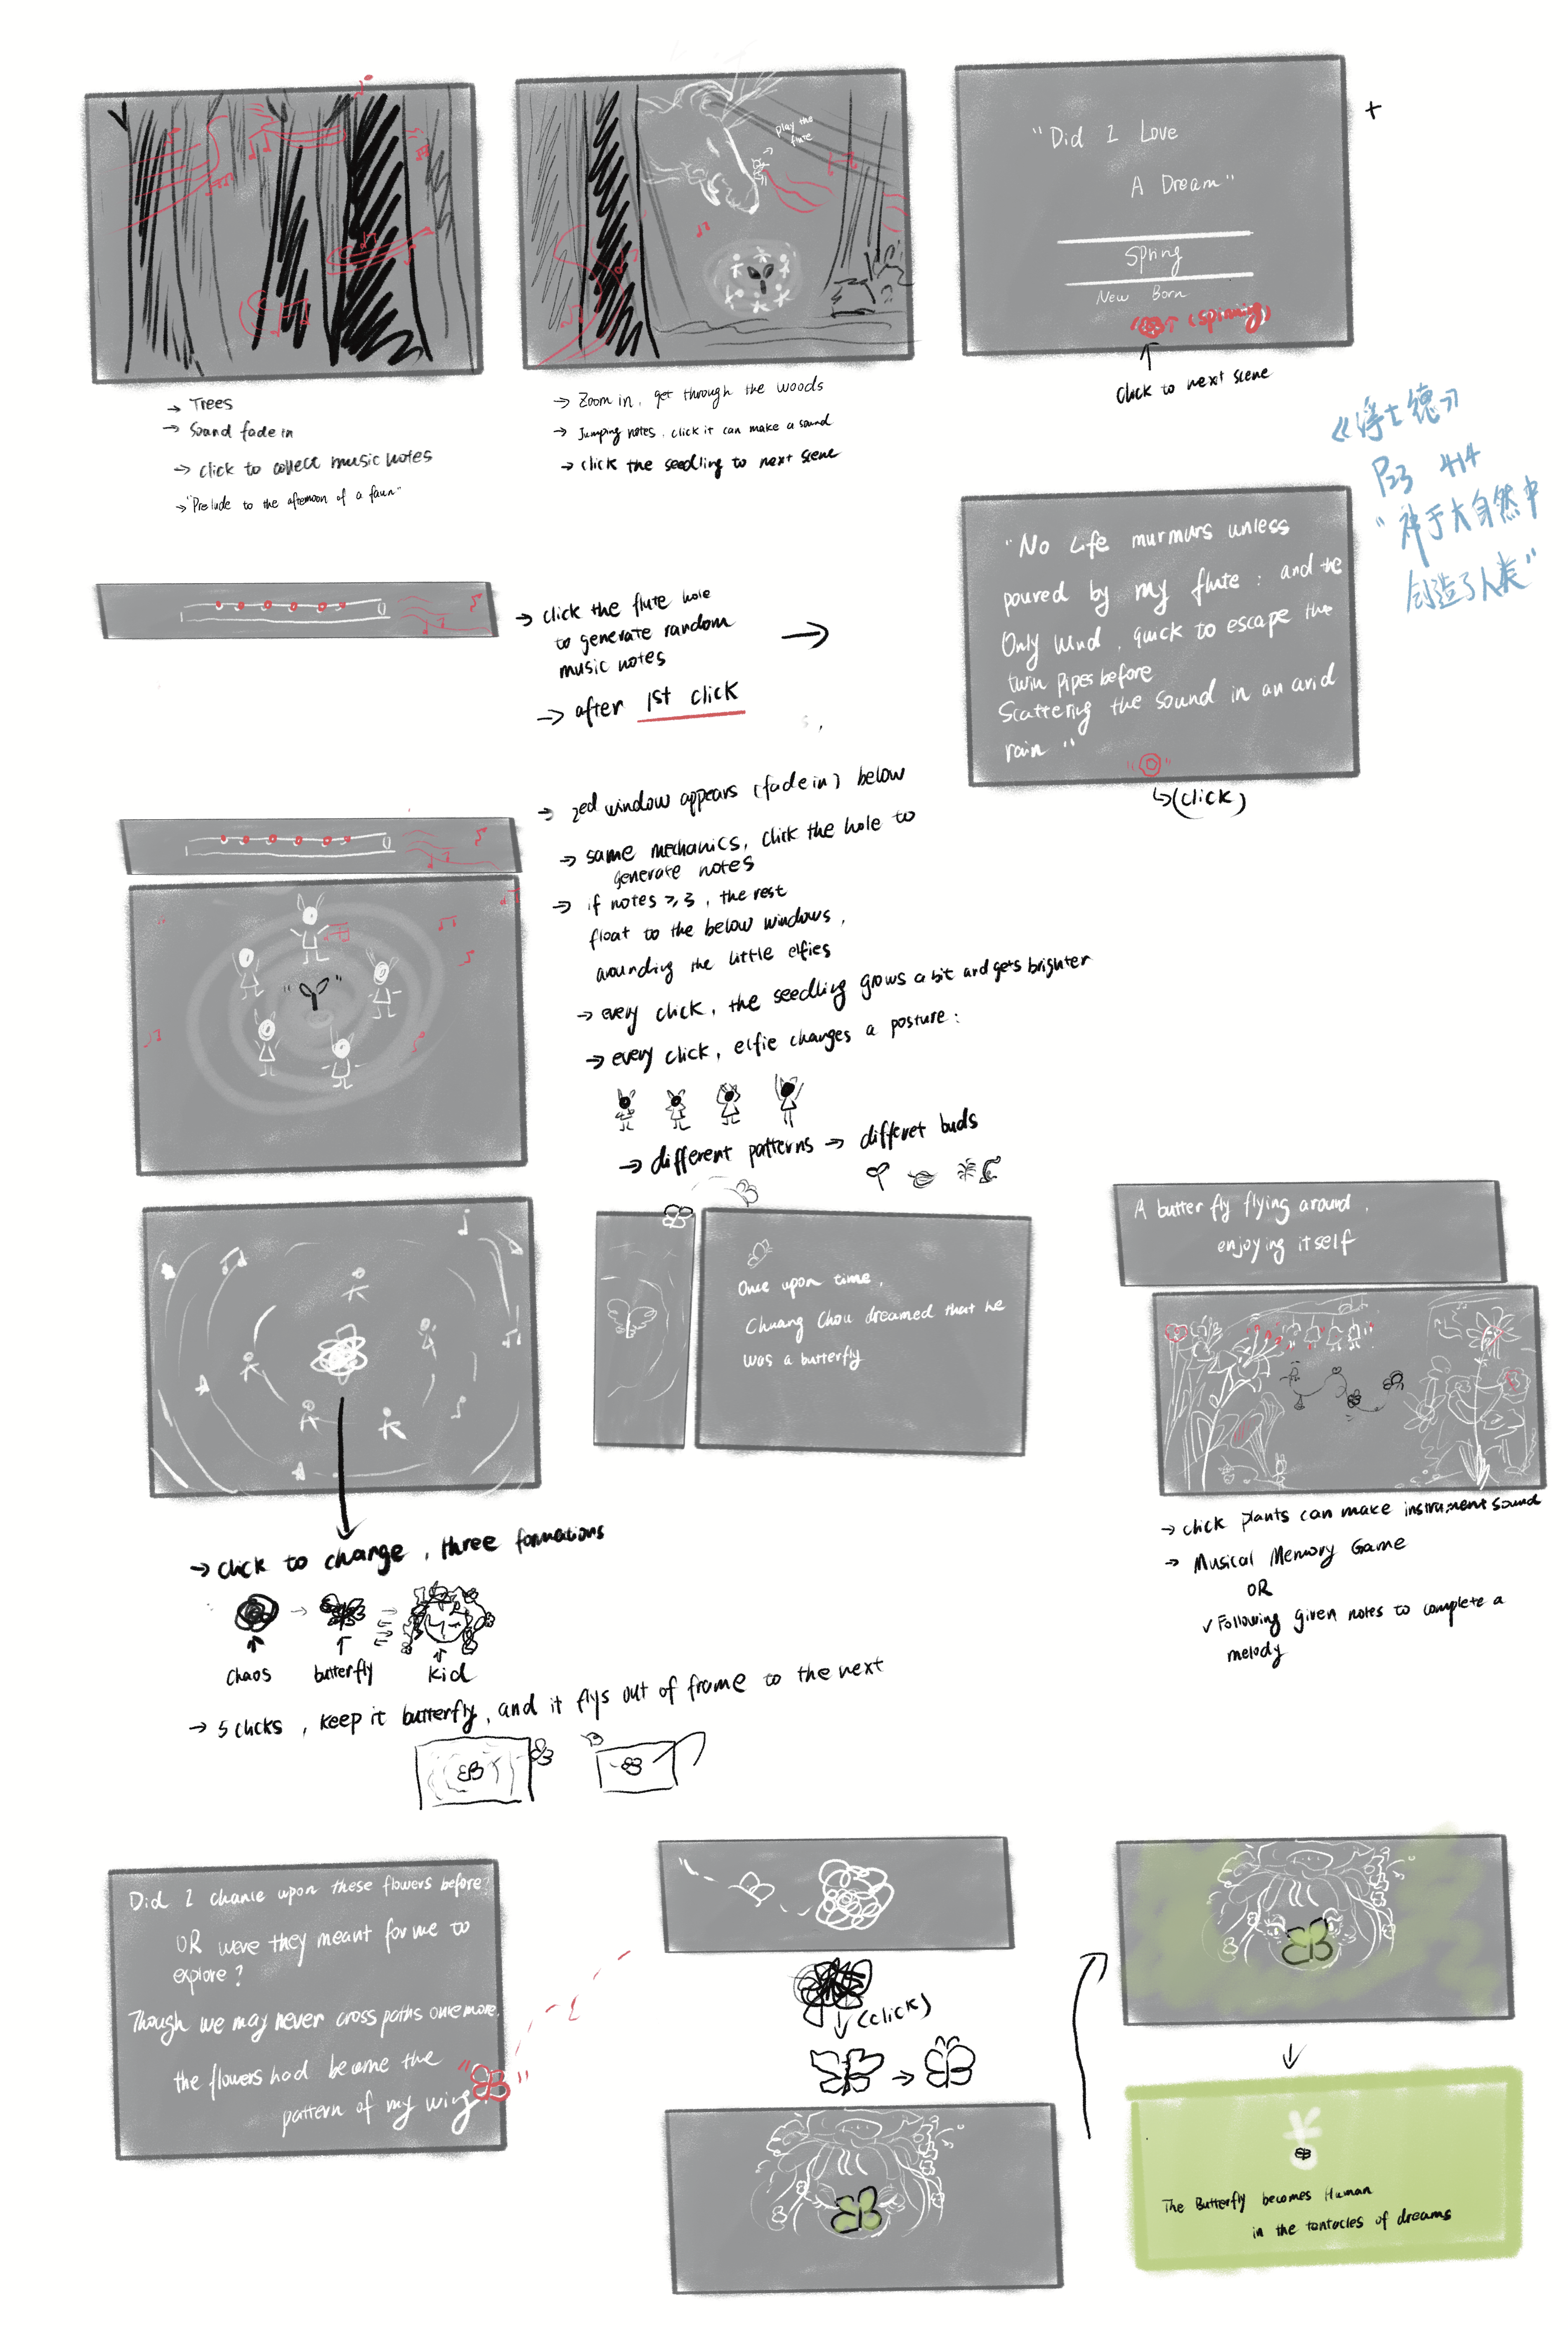 play the
flute
"Did I Love
A Dream"
Spring
New Born
(spinning)
+
Click to next scene
→ Trees
→ Sound fade in
→ click to collect music notes
→ "Prelude to the afternoon of a faun"
→ Zoom in, get through the woods
→ Jumping notes, click it can make a sound
→ click the seedling to next scene
《浮士德》
P23 414
"神于大自然中
创造了人类"
→ click the flute hole
to generate random
music notes
→ after 1st click
"No Life murmurs unless
poured by my flute : and the
Only wind, quick to escape the
twin pipes before
Scattering the sound in an arid
rain"
(click)
→ 2ed window appears (fade in) below
→ same mechanics, click the hole to
generate notes
→ if notes ≥ 3, the rest
float to the below windows,
arounding the little elfies
→ every click, the seedling grows a bit and gets brighter
→ every click, elfie changes a posture:
→ different patterns → differet buds
Once upon time,
Chuang Chou dreamed that he
was a butterfly
A butterfly flying around,
enjoying itself
→ click plants can make instrument sound
→ Musical Memory Game
OR
✓ Following given notes to complete a
melody
→ click to change, three formations
chaos
butterfly
kid
→ 5 clicks, keep it butterfly, and it flys out of frame to the next
Did I chance upon these flowers before?
OR were they meant for me to
explore?
Though we may never cross paths once more,
the flowers had become the
pattern of my wing.
(click)
The Butterfly becomes Human
in the tentacles of dreams